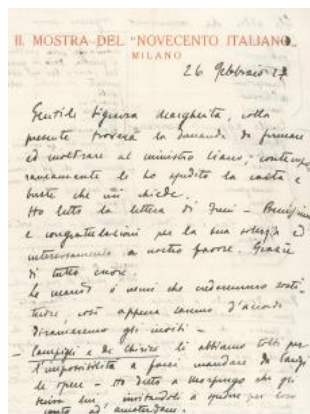 II. MOSTRA DEL "NOVECENTO ITALIANO"
MILANO
26 Febbraio 27
Gentile Signora Margherita, colla
presente troverà la domanda di firmare
ed inoltrare al ministro Ciano; contempo
raneamente le ho spedito la carta e
buste che mi chiede.
Ho letto la lettera di - Benissimo
e congratulazioni per la sua ed
interessamento a nostro favore. Grazie
di tutto cuore.
Le mando i nomi che crederemmo sosti-
tuire, così appena saremo d'accordo
diramaremo gli inviti -
- Campigli e de Chirico li abbiamo tolti per
l'impossibilità a farsi mandare da
le opere - Ho detto a che
invitandoli a spedire per loro
conto ad Amsterdam.